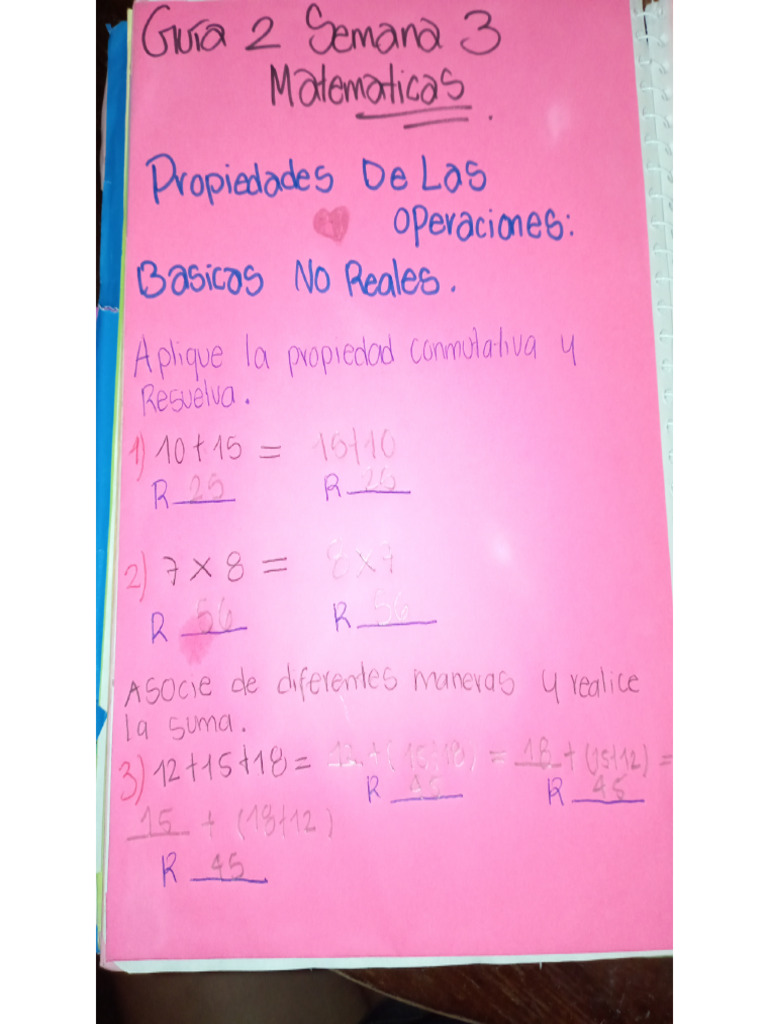 Guía 2 Semana 3
Matematicas.
Propiedades De Las
Operaciones:
Basicas No Reales.
Aplique la propiedad conmutativa y
Resuelva.
1) 10+15 = 15+10
R 25 R 25
2) 7 x 8 = 8x7
R 56 R 56
Asocie de diferentes maneras y realice
la suma.
3) 12+15+18 = 12 + (15+18) = 18 + (15+12) =
R 45 R 45
15 + (18+12)
R 45